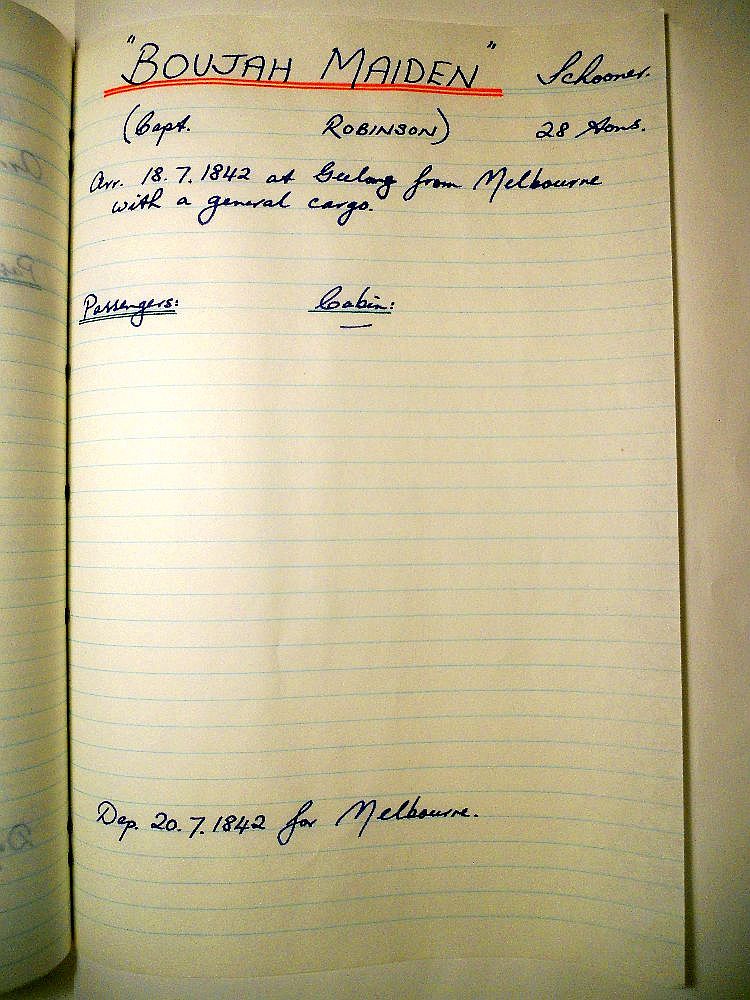 "BOUJAH MAIDEN" Schooner.
(Capt. ROBINSON) 28 tons.
Arr. 18.7.1842 at Geelong from Melbourne
with a general cargo.
Passengers: Cabin:
—
Dep. 20.7.1842 for Melbourne.